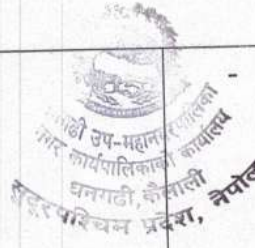 धनगढी उप-महानगरपालिका
नगर कार्यपालिकाको कार्यालय
धनगढी, कैलाली
सुदूरपश्चिम प्रदेश, नेपाल
-